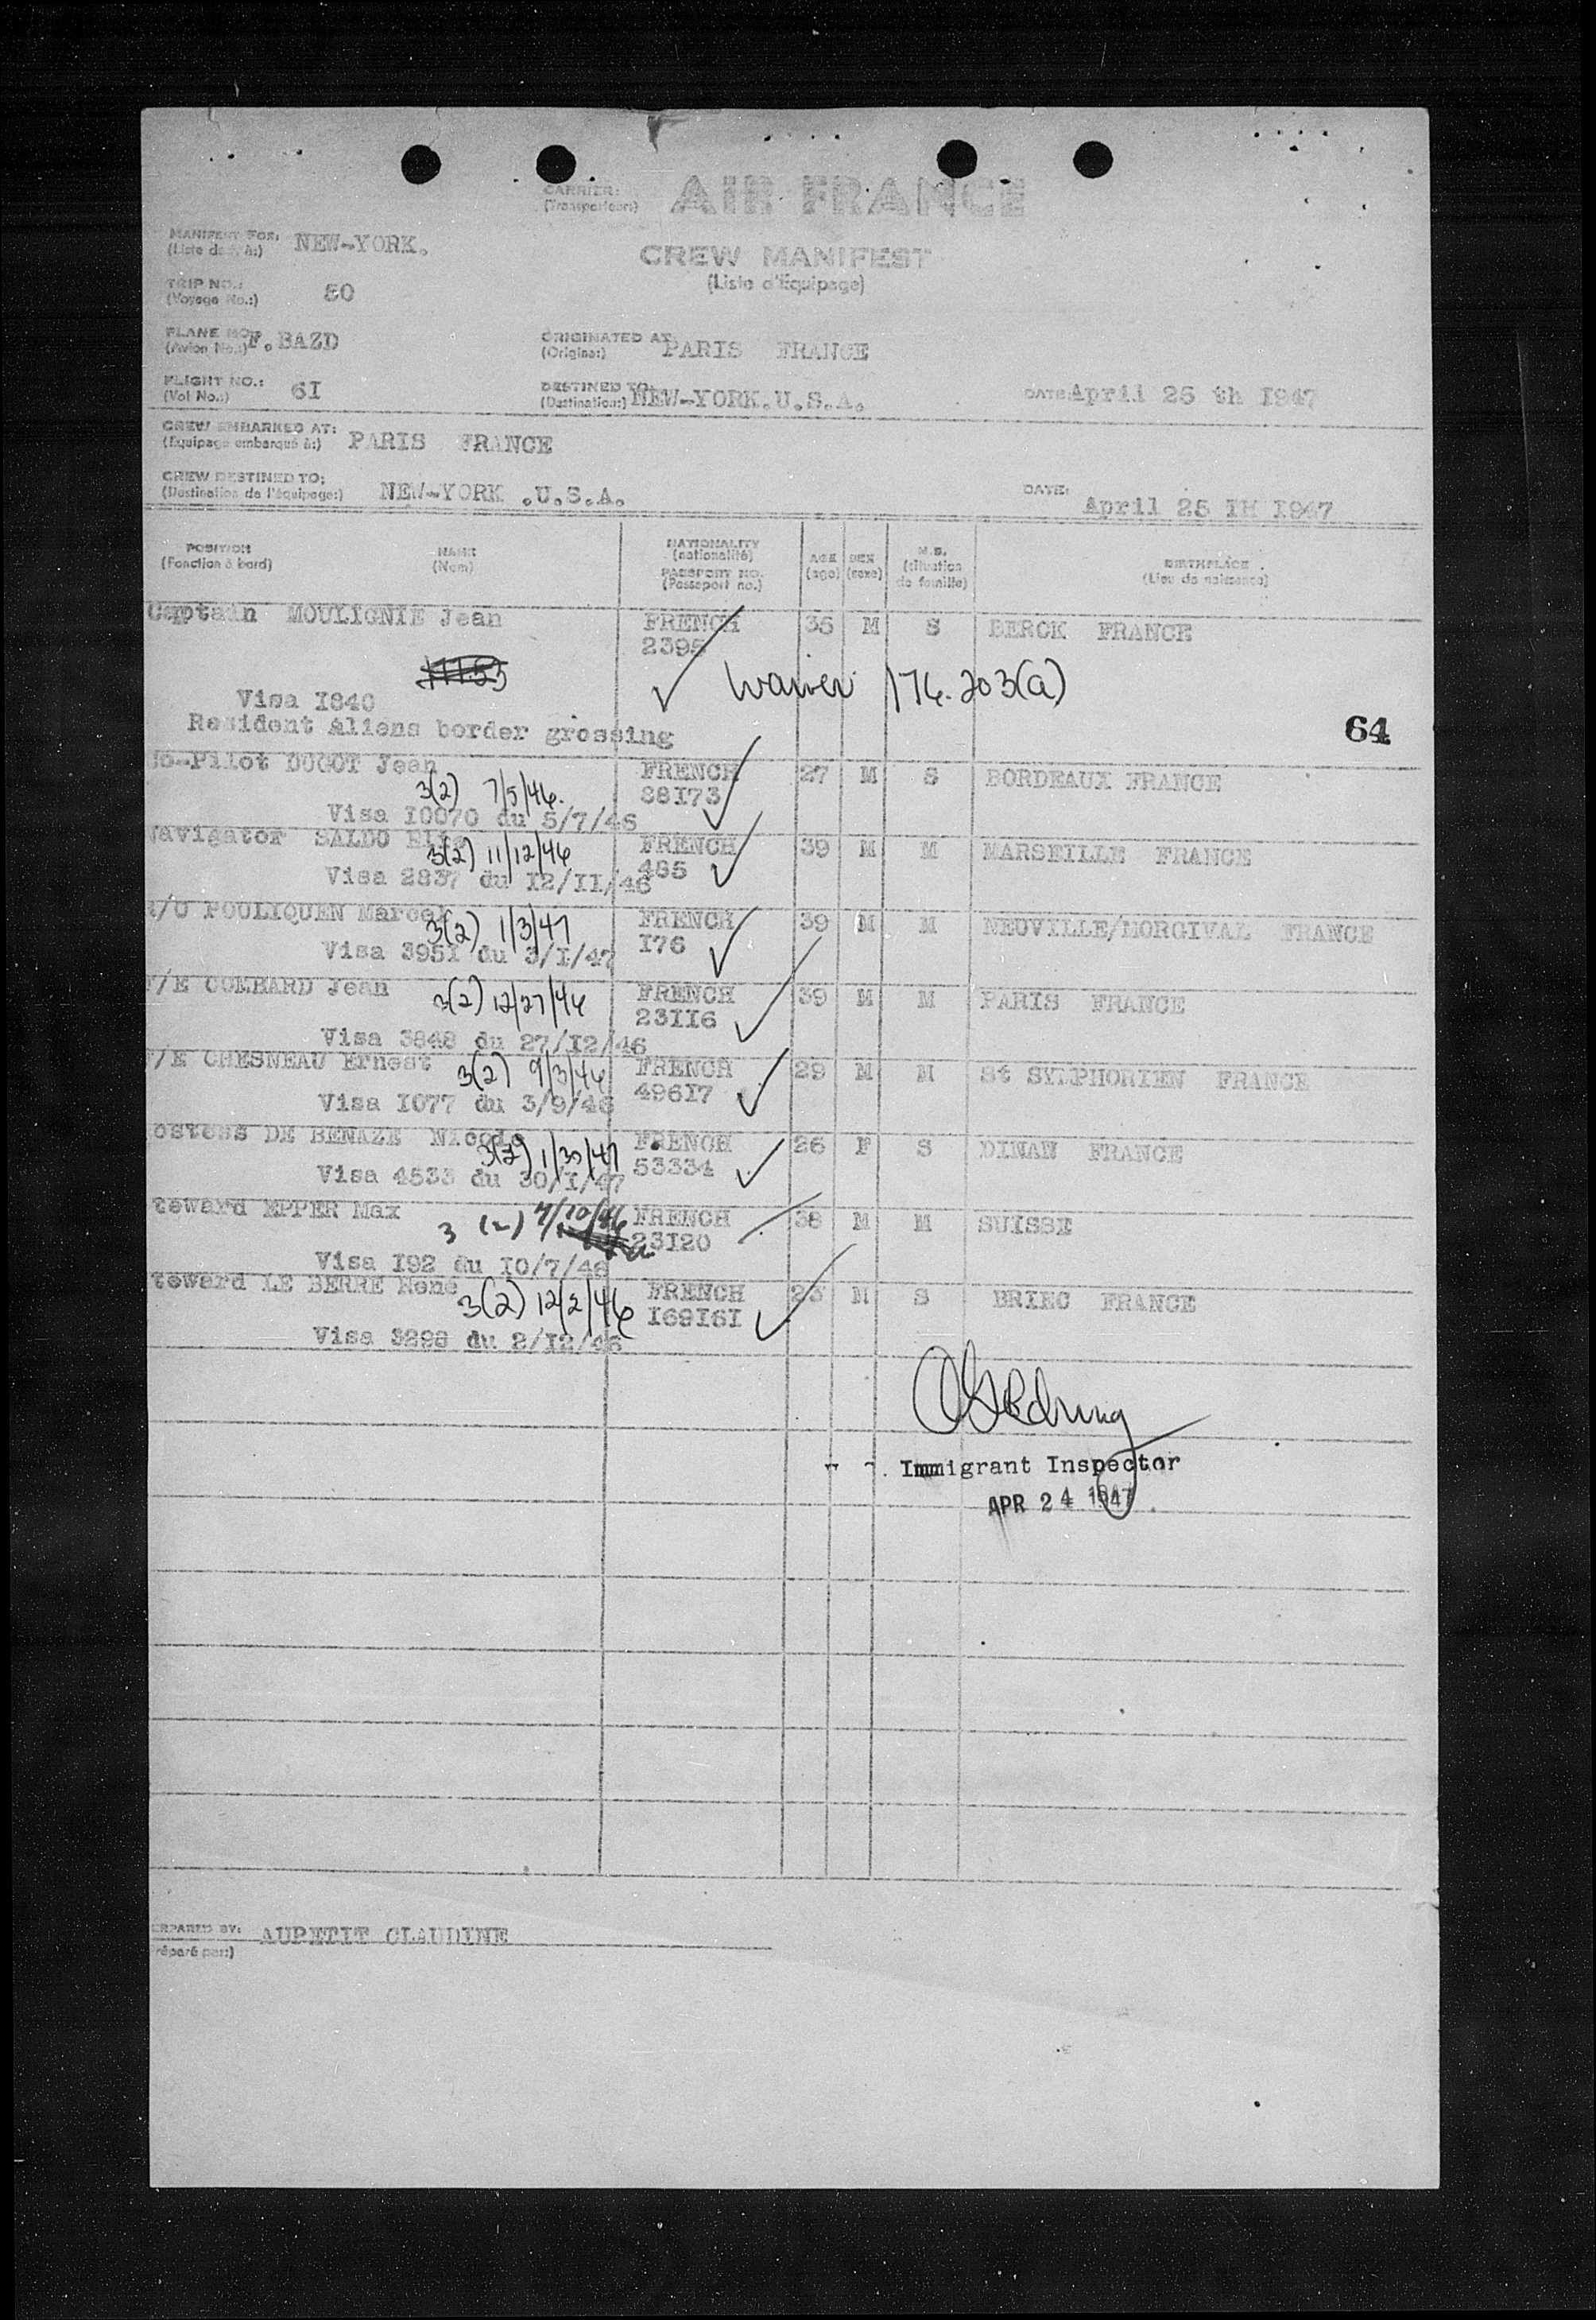 CARRIER: AIR FRANCE
(Transporteur:)
MANIFEST FOR: NEW-YORK.
CREW MANIFEST
(Liste d'Equipage)
TRIP NO.: 80
(Voyage No.:)
PLANE NO. F.BAZD
(Avion No.:)
ORIGINATED AT PARIS FRANCE
(Origine:)
FLIGHT NO.: 6I
(Vol No.:)
DESTINED TO: NEW-YORK.U.S.A.
(Destination:)
DATE: April 25 th I947
CREW EMBARKED AT: PARIS FRANCE
(Equipage embarqué à:)
CREW DESTINED TO: NEW-YORK .U.S.A.
(Destination de l'équipage:)
DATE: April 25 TH I947
POSITION
(Fonction à bord)
NAME
(Nom)
NATIONALITY
(nationalité)
PASSPORT NO.
(Passeport no.)
AGE
(age)
SEX
(sexe)
M.S.
(situation
de famille)
BIRTHPLACE
(Lieu de naissance)
Captain MOULIGNIE Jean FRENCH 35 M S BERCK FRANCE
2395
Waiver 176.203(a)
Visa I840
Resident Aliens border grossing
64
o-Pilot DUGOT Jean FRENCH 27 M S BORDEAUX FRANCE
3(2) 7/5/46. 28I73
Visa I0070 du 5/7/46
avigator SALDO FRENCH 39 M M MARSEILLE FRANCE
3(2) 11/12/46 485
Visa 2837 du I2/II/46
/O POULIQUEN Marcel FRENCH 39 M M NEUVILLE/MORGIVAL FRANCE
3(2) 1/3/47 I76
Visa 395I du 3/I/47
/E COMBARD Jean FRENCH 39 M M PARIS FRANCE
3(2) 12/27/46 23II6
Visa 3848 du 27/I2/46
/E CHESNEAU Ernest FRENCH 29 M M St SYMPHORIEN FRANCE
3(2) 9/3/46 496I7
Visa I077 du 3/9/46
ostess DE BENAZE Nicole FRENCH 26 F S DINAN FRANCE
3(2) 1/30/47 53334
Visa 4533 du 30/I/47
teward EPPER Max FRENCH 38 M M SUISSE
3 (2) 7/10/46 23I20
Visa I92 du I0/7/46
teward LE BERRE René FRENCH 23 M S BRIEC FRANCE
3(2) 12/2/46 I69I6I
Visa 3298 du 2/I2/46
Immigrant Inspector
APR 24 1947
EPARED BY: AUPETIT CLAUDINE
réparé par:)